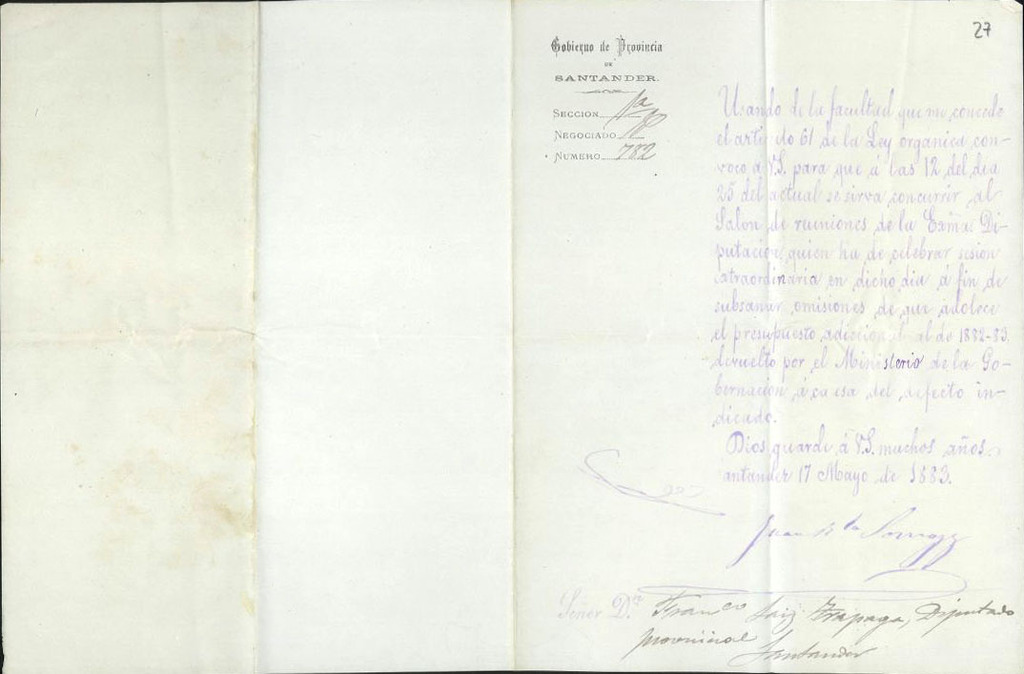 27
Gobierno de Provincia
DE
SANTANDER.
SECCION 1a
NEGOCIADO 1º
NUMERO 782
Usando de la facultad que me concede
el articulo 61 de la Ley organica con-
voco á V.S. para que á las 12 del dia
25 del actual se sirva concurrir al
Salon de reuniones de la Exma Di-
putacion quien ha de celebrar sesion
extraordinaria en dicho dia á fin de
subsanar omisiones de que adolece
el presupuesto adicional al de 1882-83.
devuelto por el Ministerio de la Go-
bernacion á causa del defecto in-
dicado.
Dios guarde á V.S. muchos años.
antander 17 Mayo de 1883.
Juan Bta Somogy
Señor Dn Franco Saiz Trápaga, Diputado
provincial
Santander